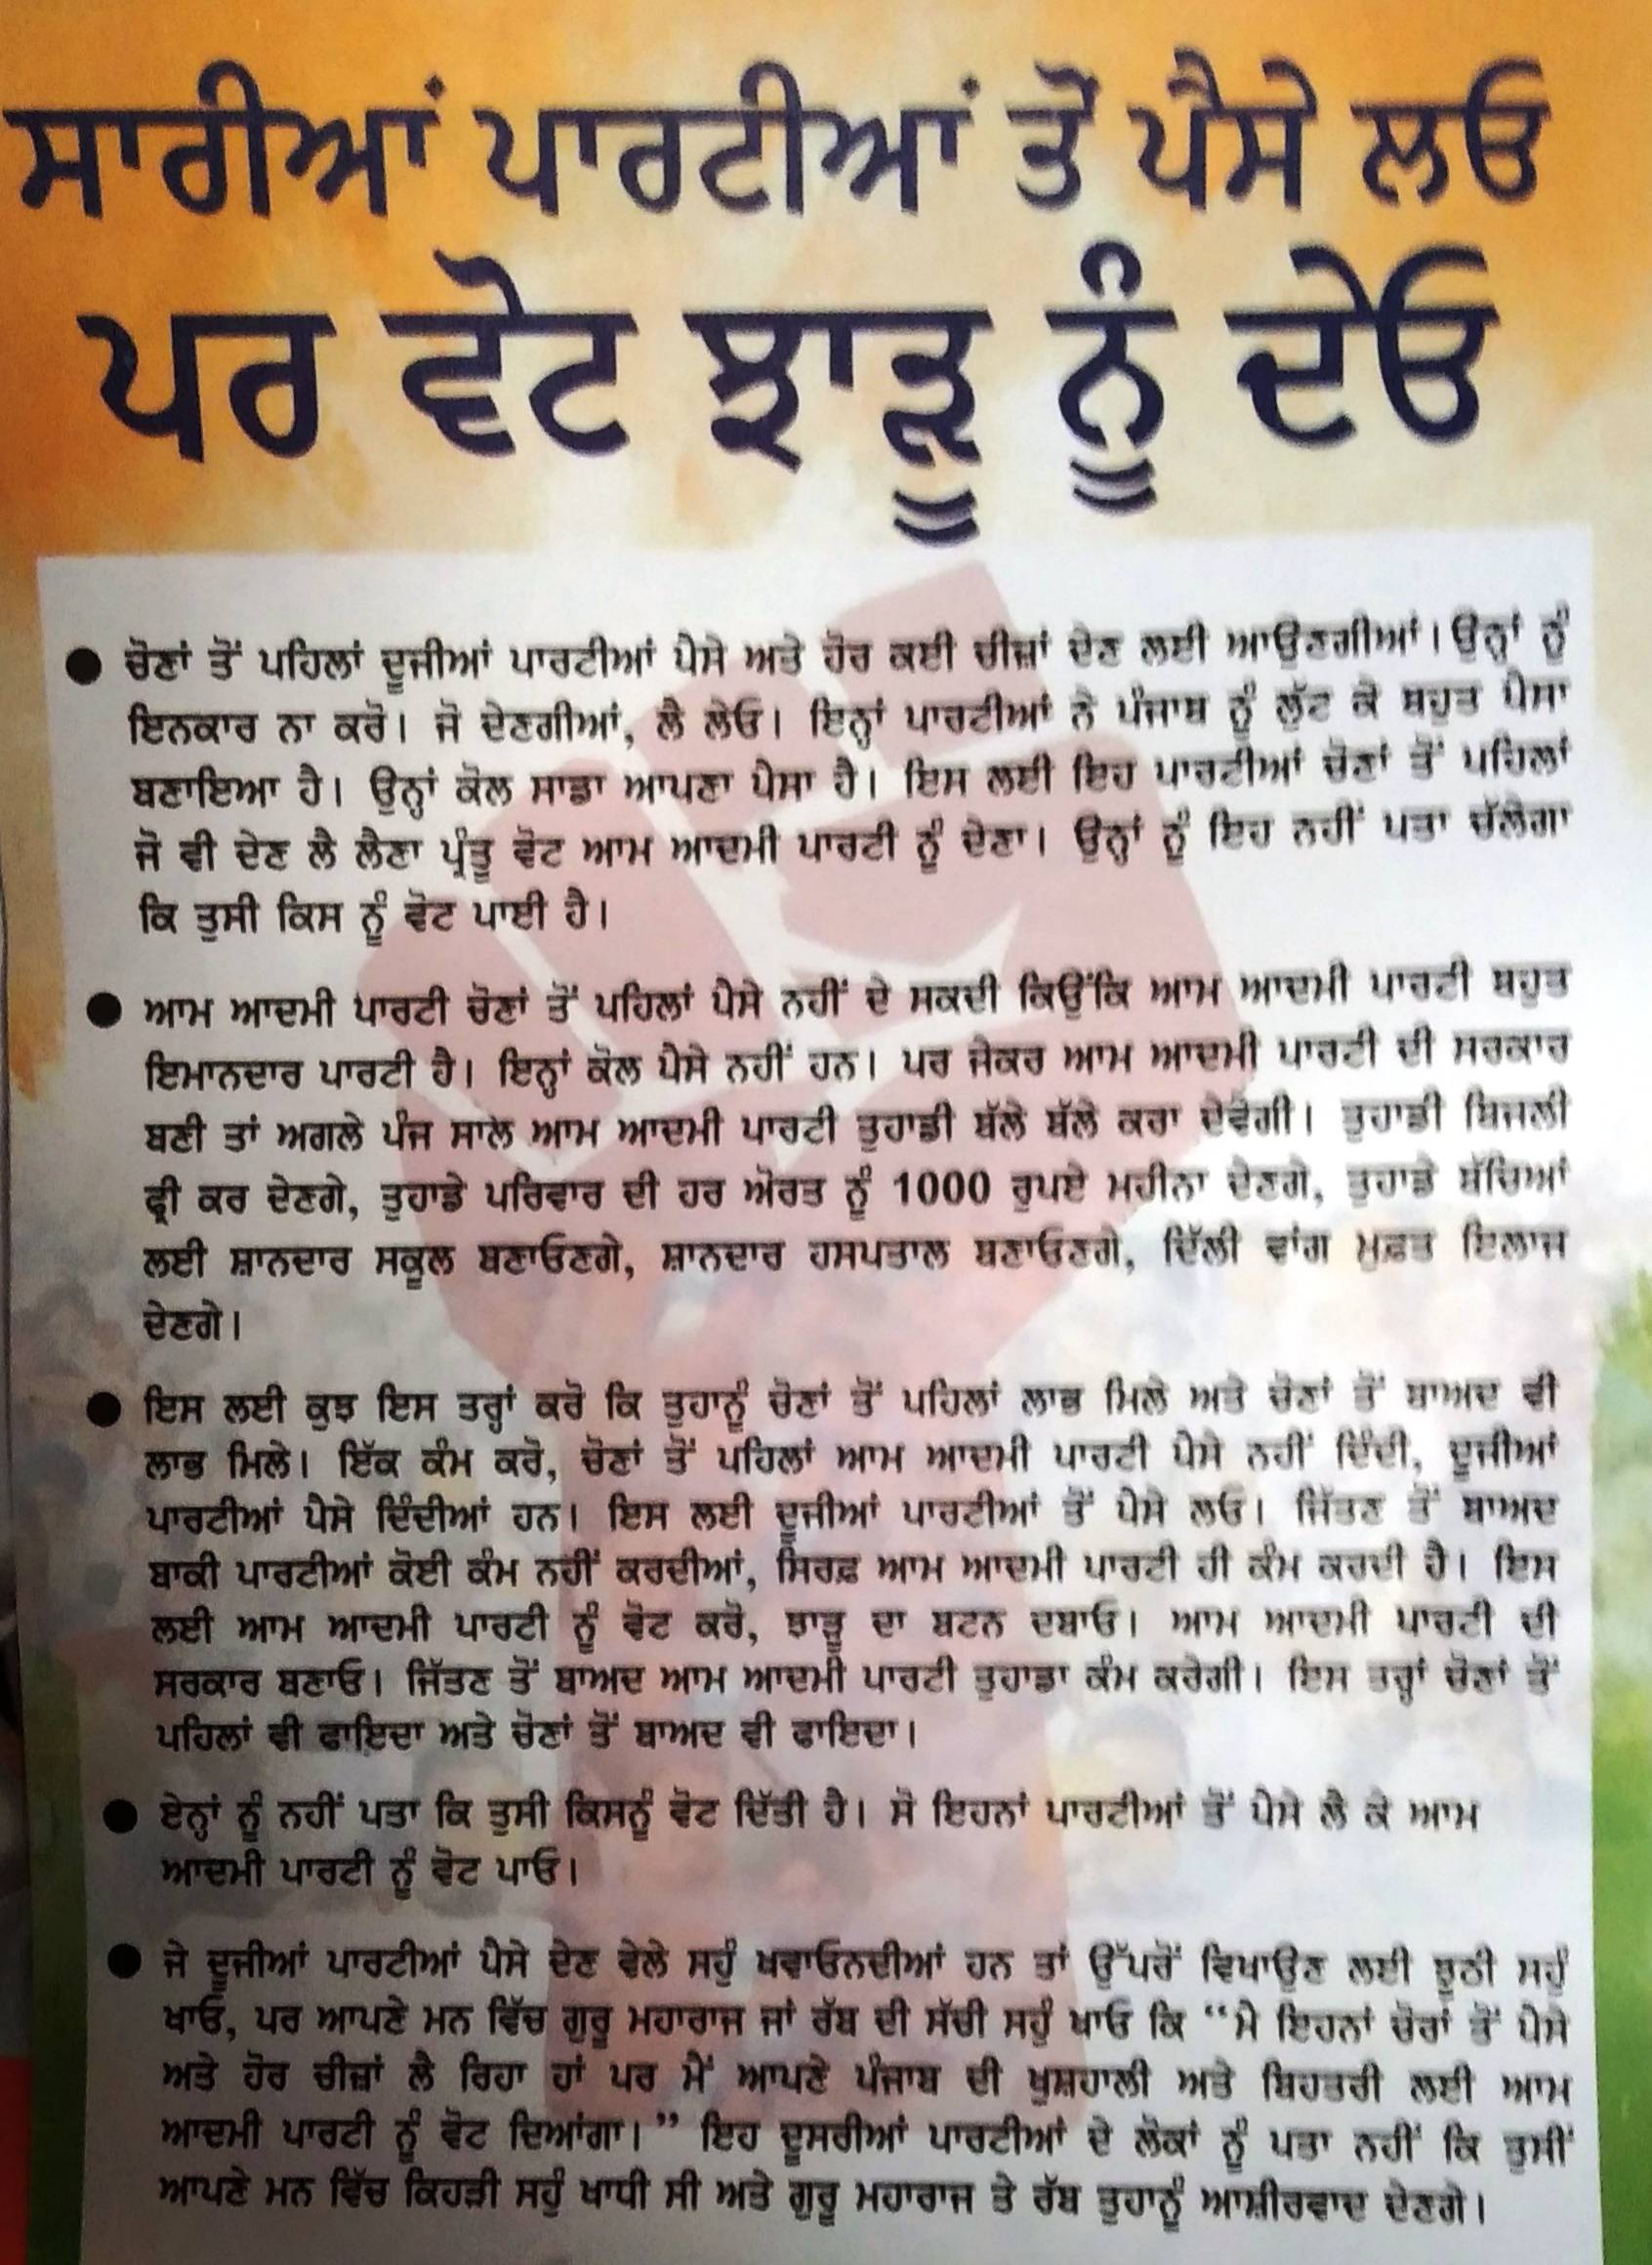 ਸਾਰੀਆਂ ਪਾਰਟੀਆਂ ਤੋਂ ਪੈਸੇ ਲਓ
ਪਰ ਵੋਟ ਝਾੜੂ ਨੂੰ ਦੇਓ
● ਚੋਣਾਂ ਤੋਂ ਪਹਿਲਾਂ ਦੂਜੀਆਂ ਪਾਰਟੀਆਂ ਪੈਸੇ ਅਤੇ ਹੋਰ ਕਈ ਚੀਜ਼ਾਂ ਦੇਣ ਲਈ ਆਉਣਗੀਆਂ। ਉਨ੍ਹਾਂ ਨੂੰ
ਇਨਕਾਰ ਨਾ ਕਰੋ। ਜੋ ਦੇਣਗੀਆਂ, ਲੈ ਲੇਓ। ਇਨ੍ਹਾਂ ਪਾਰਟੀਆਂ ਨੇ ਪੰਜਾਬ ਨੂੰ ਲੁੱਟ ਕੇ ਬਹੁਤ ਪੈਸਾ
ਬਣਾਇਆ ਹੈ। ਉਨ੍ਹਾਂ ਕੋਲ ਸਾਡਾ ਆਪਣਾ ਪੈਸਾ ਹੈ। ਇਸ ਲਈ ਇਹ ਪਾਰਟੀਆਂ ਚੋਣਾਂ ਤੋਂ ਪਹਿਲਾਂ
ਜੋ ਵੀ ਦੇਣ ਲੈ ਲੈਣਾ ਪ੍ਰੰਤੂ ਵੋਟ ਆਮ ਆਦਮੀ ਪਾਰਟੀ ਨੂੰ ਦੇਣਾ। ਉਨ੍ਹਾਂ ਨੂੰ ਇਹ ਨਹੀਂ ਪਤਾ ਚੱਲੇਗਾ
ਕਿ ਤੁਸੀ ਕਿਸ ਨੂੰ ਵੋਟ ਪਾਈ ਹੈ।
● ਆਮ ਆਦਮੀ ਪਾਰਟੀ ਚੋਣਾਂ ਤੋਂ ਪਹਿਲਾਂ ਪੈਸੇ ਨਹੀਂ ਦੇ ਸਕਦੀ ਕਿਉਂਕਿ ਆਮ ਆਦਮੀ ਪਾਰਟੀ ਬਹੁਤ
ਇਮਾਨਦਾਰ ਪਾਰਟੀ ਹੈ। ਇਨ੍ਹਾਂ ਕੋਲ ਪੈਸੇ ਨਹੀਂ ਹਨ। ਪਰ ਜੇਕਰ ਆਮ ਆਦਮੀ ਪਾਰਟੀ ਦੀ ਸਰਕਾਰ
ਬਣੀ ਤਾਂ ਅਗਲੇ ਪੰਜ ਸਾਲ ਆਮ ਆਦਮੀ ਪਾਰਟੀ ਤੁਹਾਡੀ ਬੱਲੇ ਬੱਲੇ ਕਰਾ ਦੇਵੇਗੀ। ਤੁਹਾਡੀ ਬਿਜਲੀ
ਫ੍ਰੀ ਕਰ ਦੇਣਗੇ, ਤੁਹਾਡੇ ਪਰਿਵਾਰ ਦੀ ਹਰ ਔਰਤ ਨੂੰ 1000 ਰੁਪਏ ਮਹੀਨਾ ਦੇਣਗੇ, ਤੁਹਾਡੇ ਬੱਚਿਆਂ
ਲਈ ਸ਼ਾਨਦਾਰ ਸਕੂਲ ਬਣਾਓਣਗੇ, ਸ਼ਾਨਦਾਰ ਹਸਪਤਾਲ ਬਣਾਓਣਗੇ, ਦਿੱਲੀ ਵਾਂਗ ਮੁਫ਼ਤ ਇਲਾਜ
ਦੇਣਗੇ।
● ਇਸ ਲਈ ਕੁਝ ਇਸ ਤਰ੍ਹਾਂ ਕਰੋ ਕਿ ਤੁਹਾਨੂੰ ਚੋਣਾਂ ਤੋਂ ਪਹਿਲਾਂ ਲਾਭ ਮਿਲੇ ਅਤੇ ਚੋਣਾਂ ਤੋਂ ਬਾਅਦ ਵੀ
ਲਾਭ ਮਿਲੇ। ਇੱਕ ਕੰਮ ਕਰੋ, ਚੋਣਾਂ ਤੋਂ ਪਹਿਲਾਂ ਆਮ ਆਦਮੀ ਪਾਰਟੀ ਪੈਸੇ ਨਹੀਂ ਦਿੰਦੀ, ਦੂਜੀਆਂ
ਪਾਰਟੀਆਂ ਪੈਸੇ ਦਿੰਦੀਆਂ ਹਨ। ਇਸ ਲਈ ਦੂਜੀਆਂ ਪਾਰਟੀਆਂ ਤੋਂ ਪੈਸੇ ਲਓ। ਜਿੱਤਣ ਤੋਂ ਬਾਅਦ
ਬਾਕੀ ਪਾਰਟੀਆਂ ਕੋਈ ਕੰਮ ਨਹੀਂ ਕਰਦੀਆਂ, ਸਿਰਫ਼ ਆਮ ਆਦਮੀ ਪਾਰਟੀ ਹੀ ਕੰਮ ਕਰਦੀ ਹੈ। ਇਸ
ਲਈ ਆਮ ਆਦਮੀ ਪਾਰਟੀ ਨੂੰ ਵੋਟ ਕਰੋ, ਝਾੜੂ ਦਾ ਬਟਨ ਦਬਾਓ। ਆਮ ਆਦਮੀ ਪਾਰਟੀ ਦੀ
ਸਰਕਾਰ ਬਣਾਓ। ਜਿੱਤਣ ਤੋਂ ਬਾਅਦ ਆਮ ਆਦਮੀ ਪਾਰਟੀ ਤੁਹਾਡਾ ਕੰਮ ਕਰੇਗੀ। ਇਸ ਤਰ੍ਹਾਂ ਚੋਣਾਂ ਤੋਂ
ਪਹਿਲਾਂ ਵੀ ਫਾਇਦਾ ਅਤੇ ਚੋਣਾਂ ਤੋਂ ਬਾਅਦ ਵੀ ਫਾਇਦਾ।
● ਏਨ੍ਹਾਂ ਨੂੰ ਨਹੀਂ ਪਤਾ ਕਿ ਤੁਸੀ ਕਿਸਨੂੰ ਵੋਟ ਦਿੱਤੀ ਹੈ। ਸੋ ਇਹਨਾਂ ਪਾਰਟੀਆਂ ਤੋਂ ਪੈਸੇ ਲੈ ਕੇ ਆਮ
ਆਦਮੀ ਪਾਰਟੀ ਨੂੰ ਵੋਟ ਪਾਓ।
● ਜੇ ਦੂਜੀਆਂ ਪਾਰਟੀਆਂ ਪੈਸੇ ਦੇਣ ਵੇਲੇ ਸਹੁੰ ਖਵਾਓਨਦੀਆਂ ਹਨ ਤਾਂ ਉੱਪਰੋਂ ਵਿਖਾਉਣ ਲਈ ਝੂਠੀ ਸਹੁੰ
ਖਾਓ, ਪਰ ਆਪਣੇ ਮਨ ਵਿੱਚ ਗੁਰੂ ਮਹਾਰਾਜ ਜਾਂ ਰੱਬ ਦੀ ਸੱਚੀ ਸਹੁੰ ਖਾਓ ਕਿ “ਮੈ ਇਹਨਾਂ ਚੋਰਾਂ ਤੋਂ ਪੈਸੇ
ਅਤੇ ਹੋਰ ਚੀਜ਼ਾਂ ਲੈ ਰਿਹਾ ਹਾਂ ਪਰ ਮੈਂ ਆਪਣੇ ਪੰਜਾਬ ਦੀ ਖੁਸ਼ਹਾਲੀ ਅਤੇ ਬਿਹਤਰੀ ਲਈ ਆਮ
ਆਦਮੀ ਪਾਰਟੀ ਨੂੰ ਵੋਟ ਦਿਆਂਗਾ।” ਇਹ ਦੂਸਰੀਆਂ ਪਾਰਟੀਆਂ ਦੇ ਲੋਕਾਂ ਨੂੰ ਪਤਾ ਨਹੀਂ ਕਿ ਤੁਸੀਂ
ਆਪਣੇ ਮਨ ਵਿੱਚ ਕਿਹੜੀ ਸਹੁੰ ਖਾਧੀ ਸੀ ਅਤੇ ਗੁਰੂ ਮਹਾਰਾਜ ਤੇ ਰੱਬ ਤੁਹਾਨੂੰ ਆਸ਼ੀਰਵਾਦ ਦੇਣਗੇ।